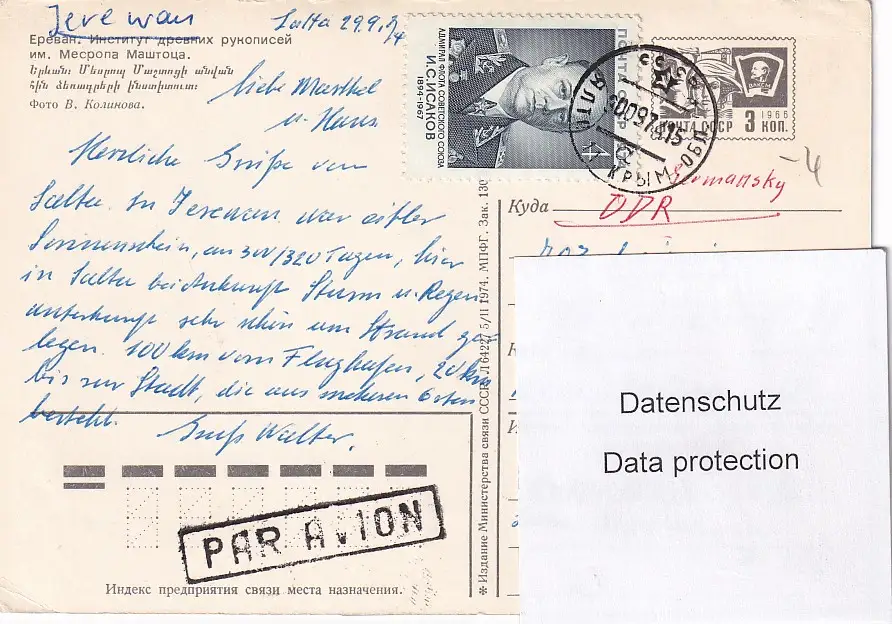 Jerewan
Jalta 29.9.74
Ереван. Институт древних рукописей
им. Месропа Маштоца.
Երևան: Մեսրոպ Մաշտոցի անվան
հին ձեռագրերի ինստիտուտ:
Фото В. Коликова.
Liebe
u. Hans
Herzliche Grüße von
Jalta. In Jerewan war eitler
Sonnenschein, an 300/320 Tagen, hier
in Jalta bei Ankunft Sturm u. Regen
Unterkunft sehr schön am Strand ge-
legen. 100 km vom Flughafen, 20 km
bis zur Stadt, die aus mehreren Orten
besteht.
Gruß Walter.
PAR AVION
Индекс предприятия связи места назначения.
* Издание Министерства связи СССР. 5/II 1974. МПФГ. Зак. 130
АДМИРАЛ ФЛОТА СОВЕТСКОГО СОЮЗА
И.С.ИСАКОВ
1894-1967
ПОЧТА СССР
4
ЯЛТА
КРЫМ. ОБЛ.
ВЛКСМ
1966
ПОЧТА СССР 3 КОП.
-4
Germansky
Куда DDR
Datenschutz
Data protection